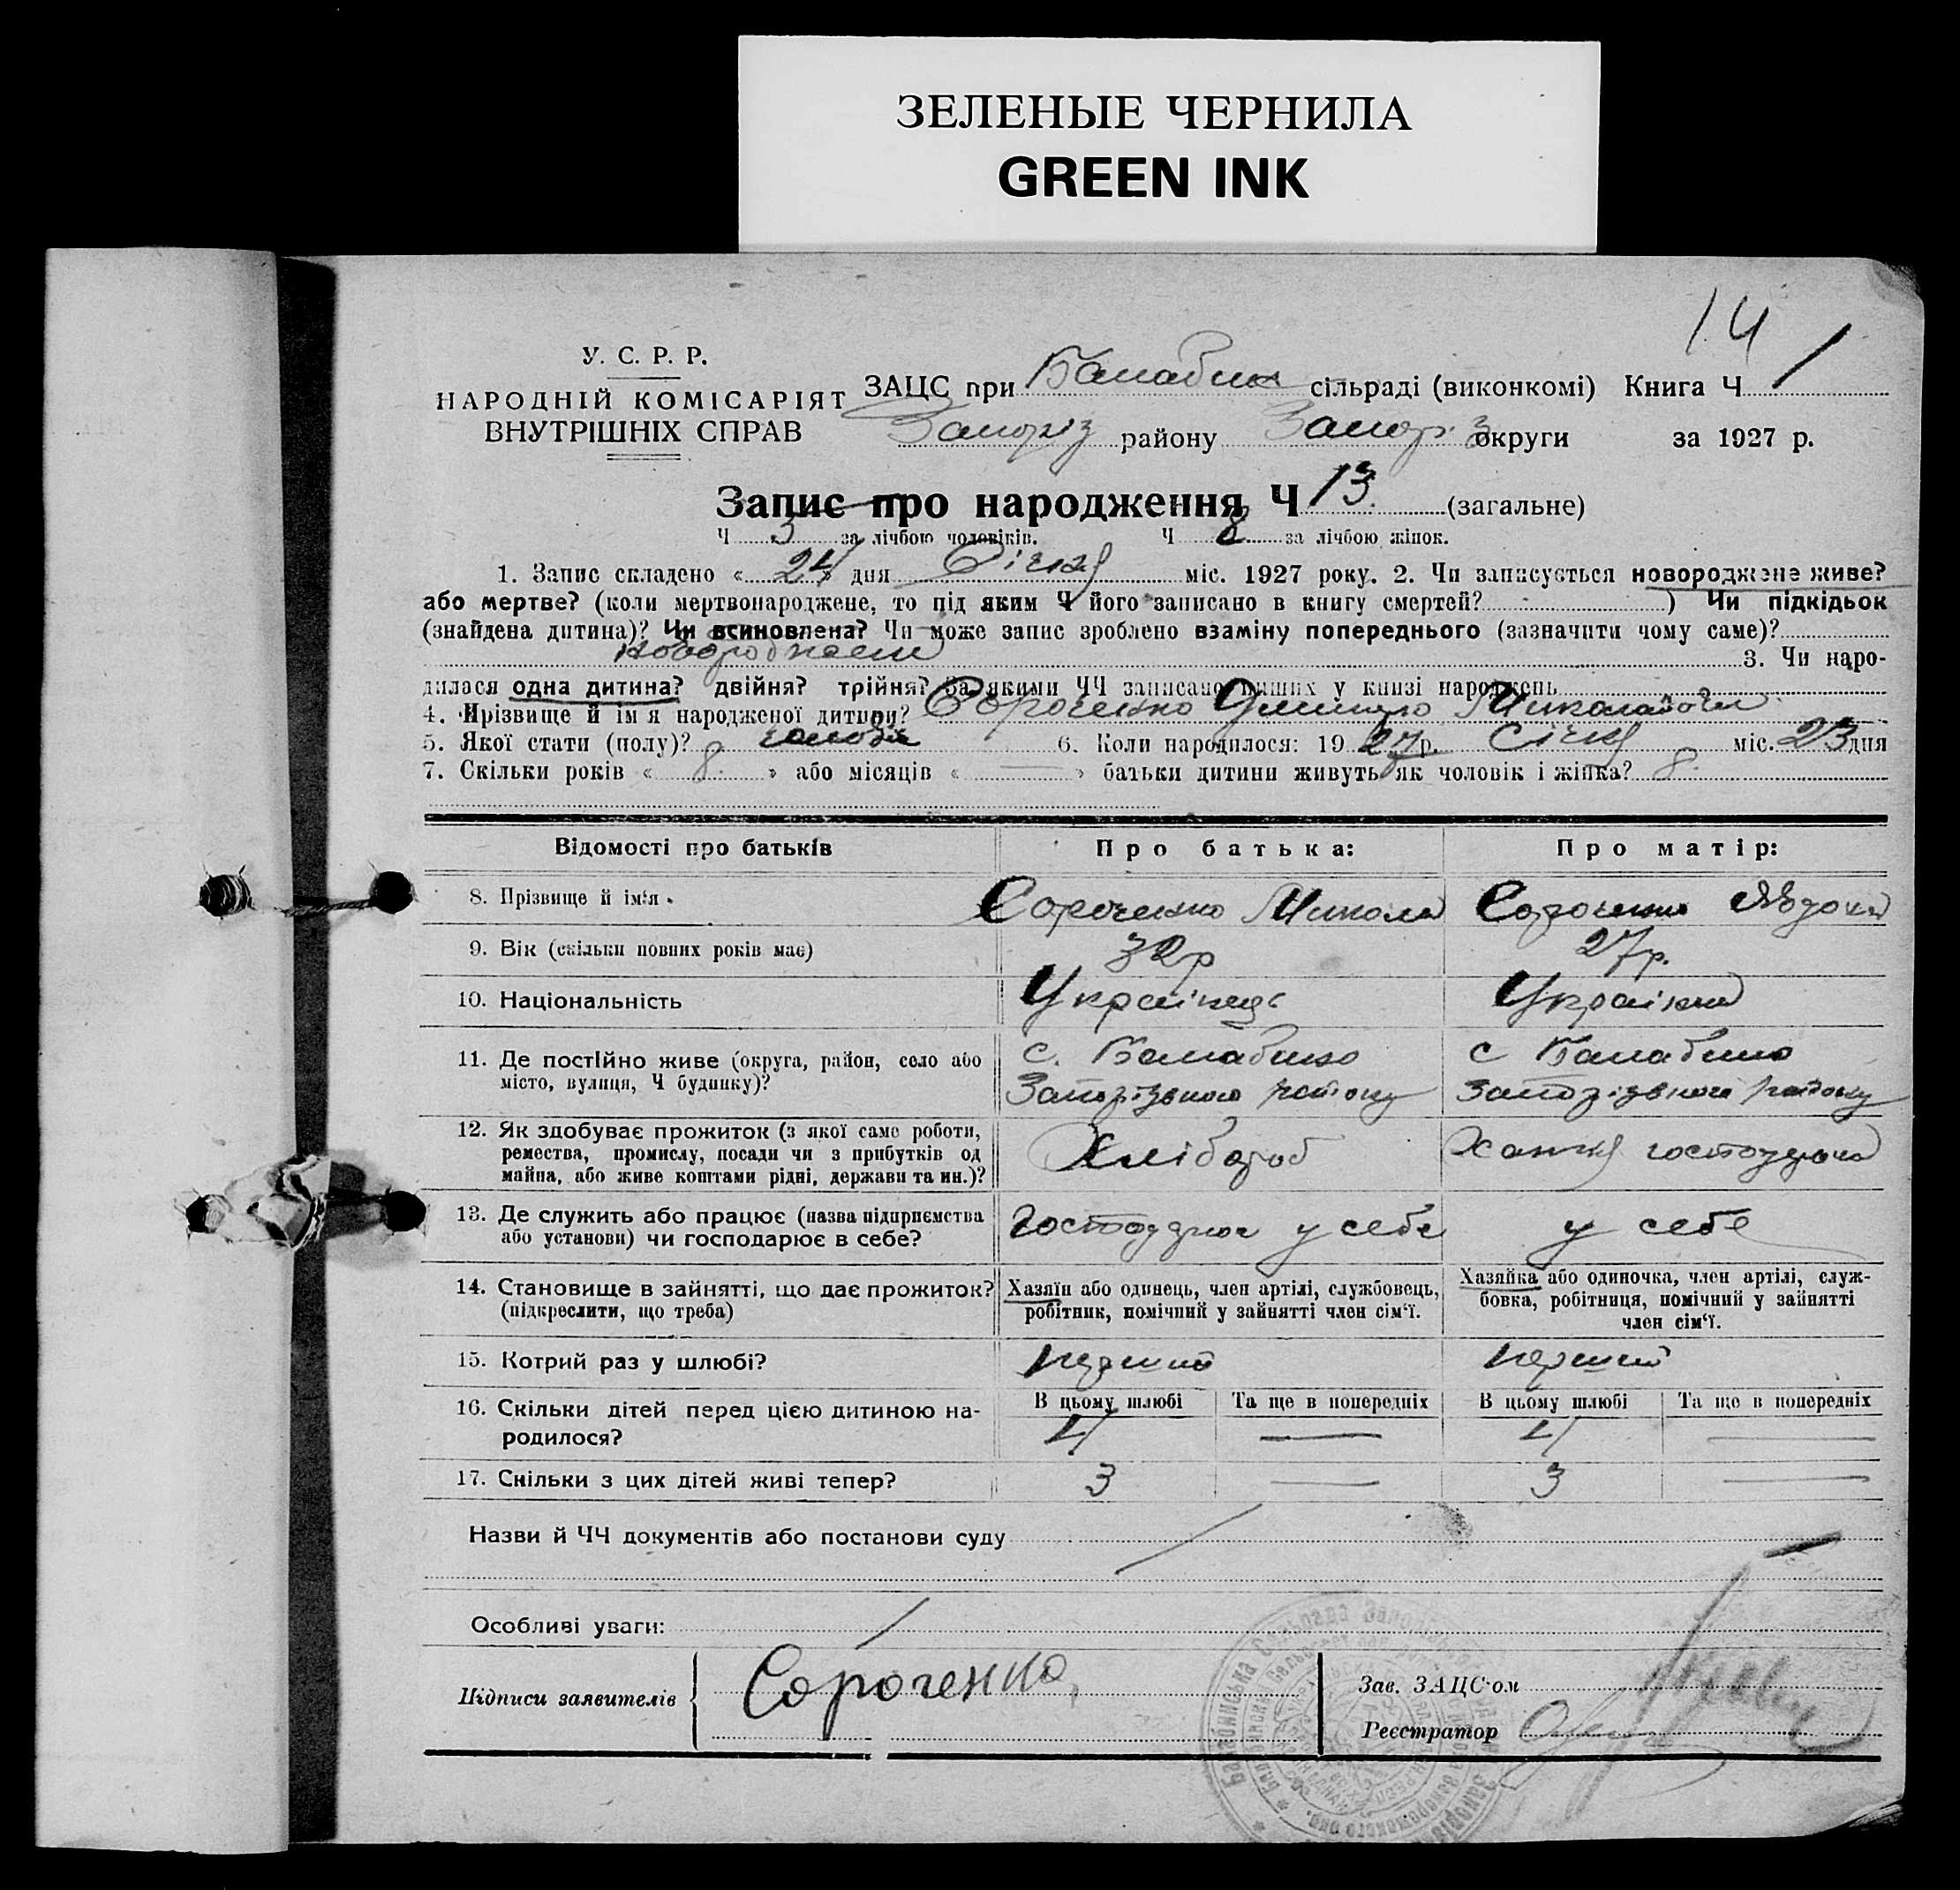 ЗЕЛЕНЫЕ ЧЕРНИЛА
GREEN INK
14
У. С. Р. Р.
НАРОДНІЙ КОМІСАРІЯТ
ВНУТРІШНІХ СПРАВ
ЗАЦС при Балабин сільраді (виконкомі) Книга Ч 1
Запоріз району Запоріз округи за 1927 р.
Запис про народження Ч 13. (загальне)
Ч 3 за лічбою чоловіків. Ч 8 за лічбою жінок.
1. Запис складено « 24 » дня Січня міс. 1927 року. 2. Чи записується новороджене живе?
або мертве? (коли мертвонароджене, то під яким Ч його записано в книгу смертей? ) Чи підкідьок
(знайдена дитина)? Чи всиновлена? Чи може запис зроблено взаміну попереднього (зазначити чому саме)?
3. Чи наро-
дилася одна дитина? двійня? трійня? За якими ЧЧ записано инших у книзі народжень
4. Прізвище й ім'я народженої дитини? Сороченко Миколаович
5. Якої стати (полу)? 6. Коли народилося: 1927 р. Січня міс. 23 дня
7. Скільки років « 8 » або місяців « — » батьки дитини живуть як чоловік і жінка? 8.
Відомості про батьків Про батька: Про матір:
8. Прізвище й ім'я Сороченко Микола Сороченко Явдоха
9. Вік (скільки повних років має) 32 р 27 р.
10. Національність Українець Українка
11. Де постійно живе (округа, район, село або с. Балабино с Балабино
місто, вулиця, Ч будинку)? Запорізького району Запорізького району
12. Як здобуває прожиток (з якої саме роботи,
ремества, промислу, посади чи з прибутків од Хлібороб
майна, або живе коштами рідні, держави та ин.)?
13. Де служить або працює (назва підприємства у себе у себе
або установи) чи господарює в себе?
14. Становище в зайнятті, що дає прожиток?
(підкреслити, що треба)
Хазяїн або одинець, член артілі, службовець,
робітник, помічний у зайнятті член сім'ї.
Хазяйка або одиночка, член артілі, служ-
бовка, робітниця, помічний у зайнятті
член сім'ї.
15. Котрий раз у шлюбі? перший перший
16. Скільки дітей перед цією дитиною на-
родилося?
В цьому шлюбі Та ще в попередніх В цьому шлюбі Та ще в попередніх
4 — 4 —
17. Скільки з цих дітей живі тепер? 3 — 3 —
Назви й ЧЧ документів або постанови суду
Особливі уваги:
Підписи заявителів Сороченко,
Зав. ЗАЦС'ом
Реєстратор